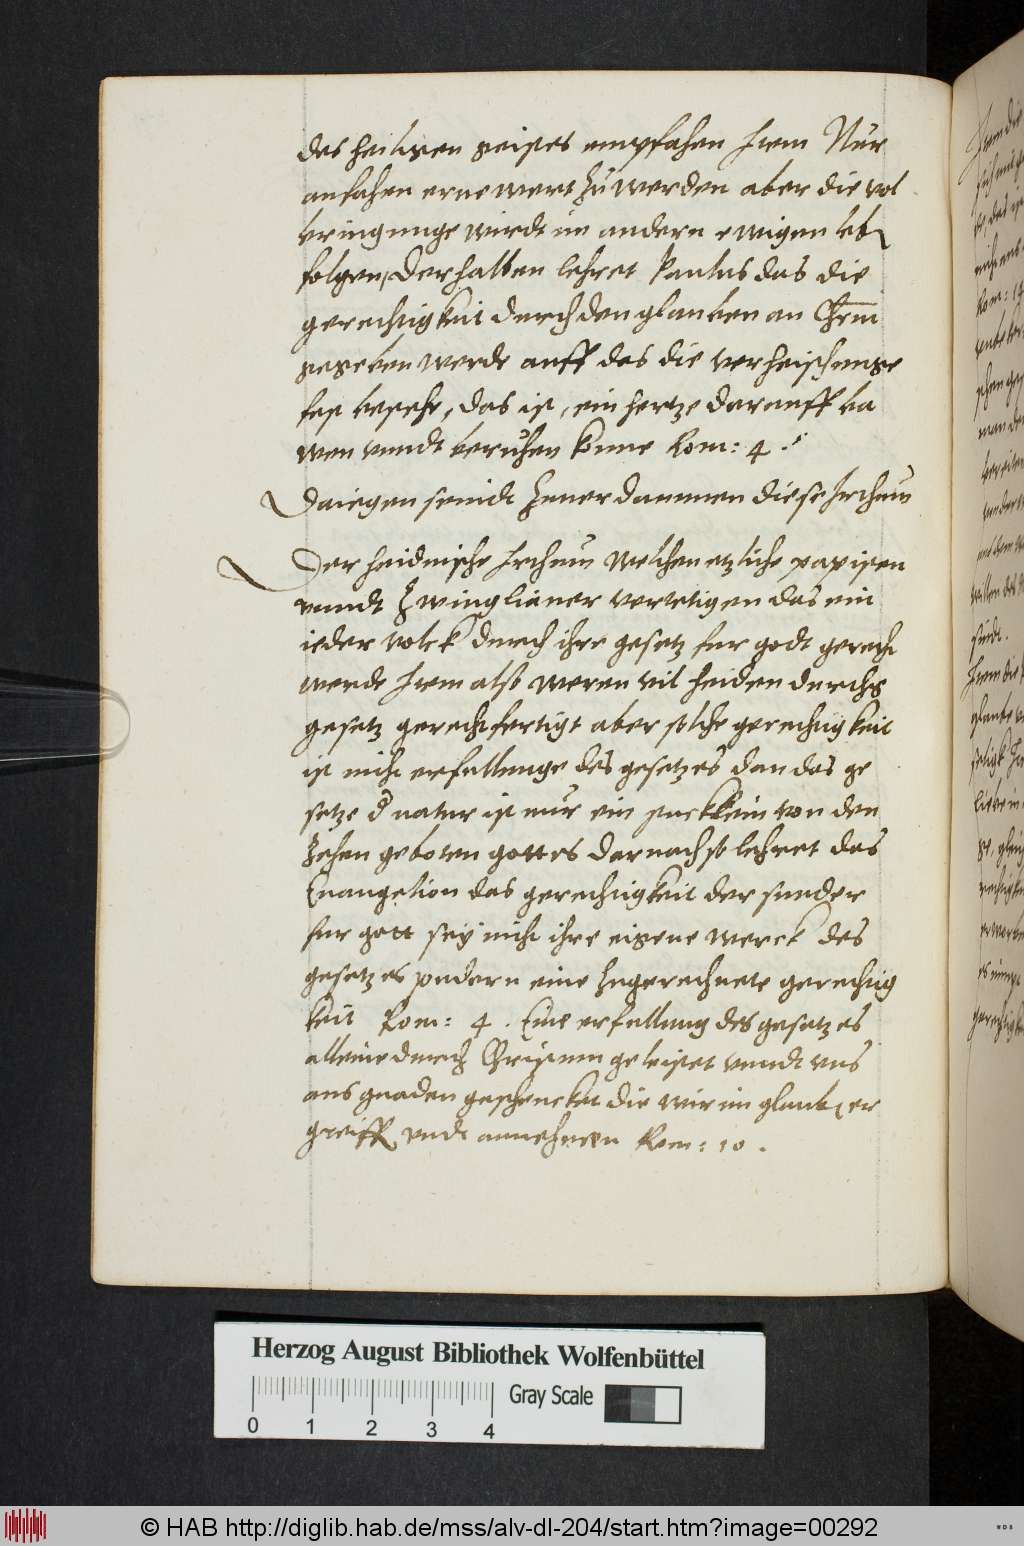 des heiligen geistes empfahen Item Nur
anfahen ernewert zu werden aber die vol
bringunge wirdt im andern ewigen leb
folgen, Derhalben lehret Paulus das die
gerechtigkeit durch den glauben an Christum
gegeben werde auff das die verheischunge
fest bestehe, das ist, ein hertze darauff ba
wen vnndt beruhen könne Rom: 4.
Daiegen seindt zuuerdammen diese Irthum
Der heidnische Irthum welchen etzliche papisten
vnndt Zwinglianer vertetigen das ein
ieder volck durch ihre gesetz fur godt gerecht
werde Item also weren vil heiden durchs
gesetz gerechtfertigt aber solche gerechtigkeit
ist nicht erfullunge des gesetzes dan das ge
setze d natur ist nur ein stuckklein von den
Zehen geboten gottes darnach so lehret das
Euangelion das gerechtigkeit der sunder
fur gott sey nicht ihre eigene werck des
gesetzes sondern eine zugerechnete gerechtig
keit Rom: 4. Eine erfullung des gesetzes
alleine durch Christum geleistet vnndt vns
aus gnaden geschencket die wir im glaub er
greiff vndt annehmen Rom: 10.
Herzog August Bibliothek Wolfenbüttel
Gray Scale
0 1 2 3 4
© HAB http://diglib.hab.de/mss/alv-dl-204/start.htm?image=00292